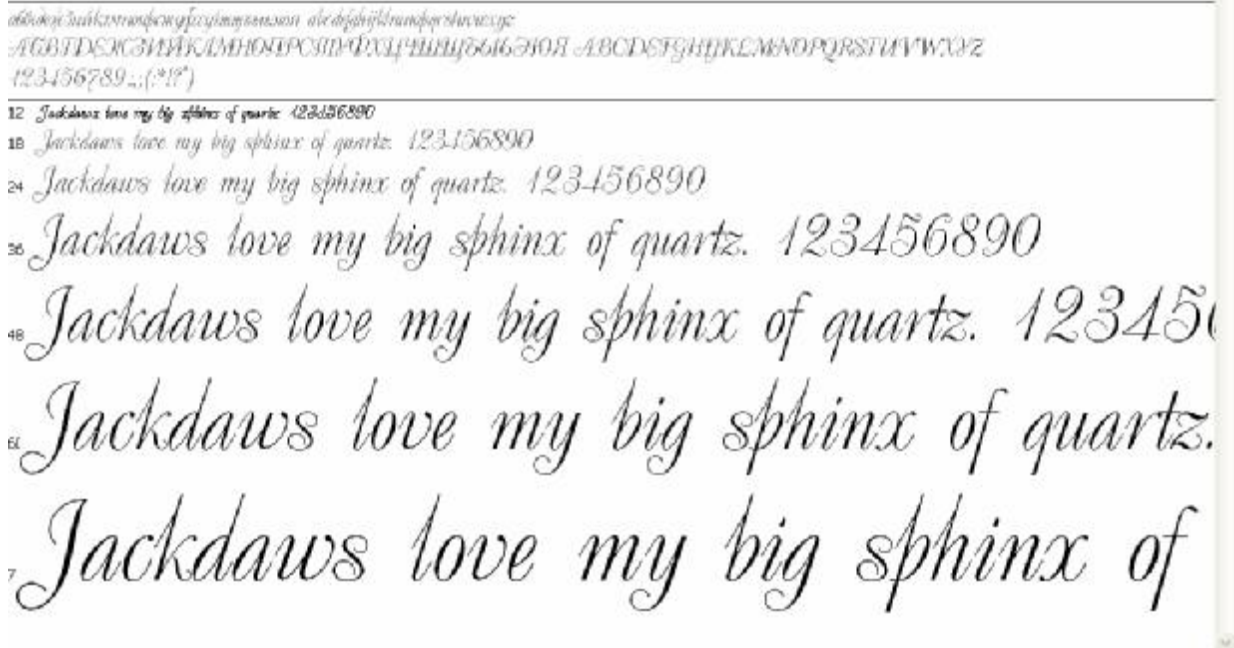 АБВГДЕЖЗИЙКЛМНОПРСТУФХЦЧШЩЪЫЬЭЮЯ ABCDEFGHIJKLMNOPQRSTUVWXYZ
123456789.,;(:*!?")
12 Jackdaws love my big sphinx of quartz. 123456890
18 Jackdaws love my big sphinx of quartz. 123456890
24 Jackdaws love my big sphinx of quartz. 123456890
36 Jackdaws love my big sphinx of quartz. 123456890
48 Jackdaws love my big sphinx of quartz. 123456
60 Jackdaws love my big sphinx of quartz.
7 Jackdaws love my big sphinx of